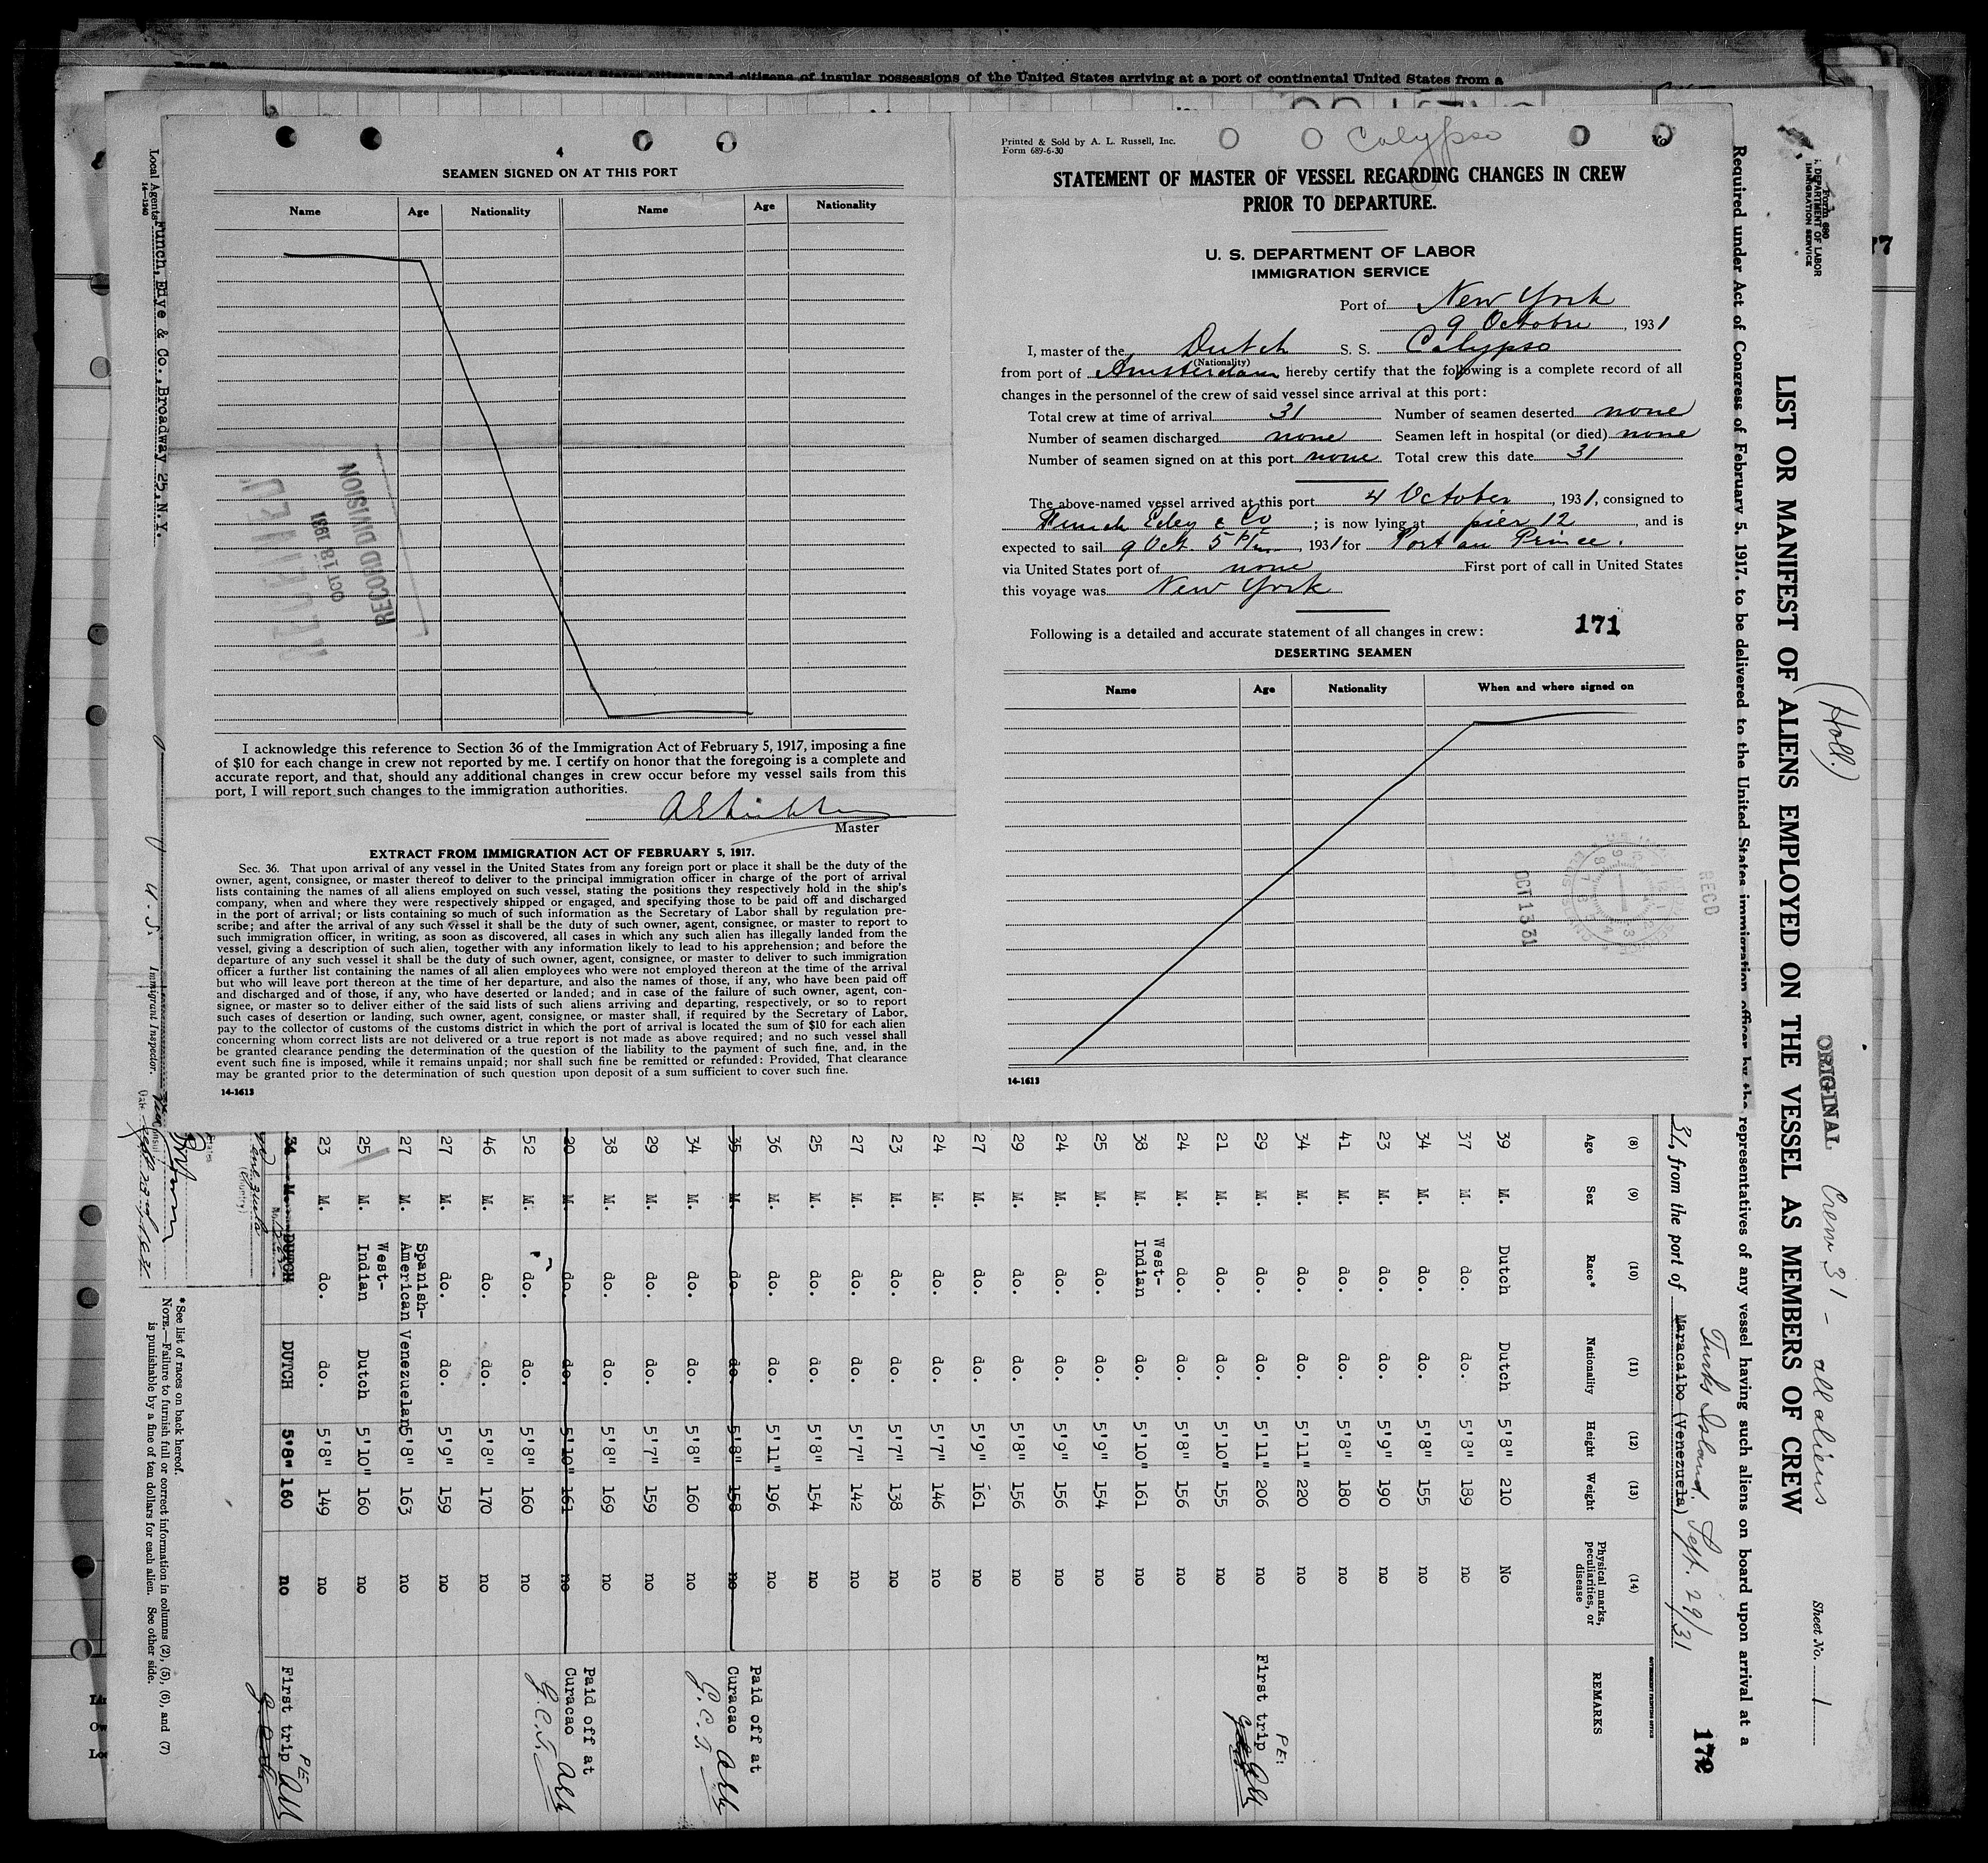 insular possessions of the United States arriving at a port of continental United States from a
4
SEAMEN SIGNED ON AT THIS PORT
Name Age Nationality Name Age Nationality
RECORD DIVISION
OCT 13 1931
I acknowledge this reference to Section 36 of the Immigration Act of February 5, 1917, imposing a fine
of $10 for each change in crew not reported by me. I certify on honor that the foregoing is a complete and
accurate report, and that, should any additional changes in crew occur before my vessel sails from this
port, I will report such changes to the immigration authorities.
Master
EXTRACT FROM IMMIGRATION ACT OF FEBRUARY 5, 1917.
Sec. 36. That upon arrival of any vessel in the United States from any foreign port or place it shall be the duty of the
owner, agent, consignee, or master thereof to deliver to the principal immigration officer in charge of the port of arrival
lists containing the names of all aliens employed on such vessel, stating the positions they respectively hold in the ship's
company, when and where they were respectively shipped or engaged, and specifying those to be paid off and discharged
in the port of arrival; or lists containing so much of such information as the Secretary of Labor shall by regulation pre-
scribe; and after the arrival of any such vessel it shall be the duty of such owner, agent, consignee, or master to report to
such immigration officer, in writing, as soon as discovered, all cases in which any such alien has illegally landed from the
vessel, giving a description of such alien, together with any information likely to lead to his apprehension; and before the
departure of any such vessel it shall be the duty of such owner, agent, consignee, or master to deliver to such immigration
officer a further list containing the names of all alien employees who were not employed thereon at the time of the arrival
but who will leave port thereon at the time of her departure, and also the names of those, if any, who have been paid off
and discharged and of those, if any, who have deserted or landed; and in case of the failure of such owner, agent, con-
signee, or master so to deliver either of the said lists of such aliens arriving and departing, respectively, or so to report
such cases of desertion or landing, such owner, agent, consignee, or master shall, if required by the Secretary of Labor,
pay to the collector of customs of the customs district in which the port of arrival is located the sum of $10 for each alien
concerning whom correct lists are not delivered or a true report is not made as above required; and no such vessel shall
be granted clearance pending the determination of the question of the liability to the payment of such fine, and, in the
event such fine is imposed, while it remains unpaid; nor shall such fine be remitted or refunded: Provided, That clearance
may be granted prior to the determination of such question upon deposit of a sum sufficient to cover such fine.
14-1613
Printed & Sold by A. L. Russell, Inc.
Form 689-6-30
Calypso
STATEMENT OF MASTER OF VESSEL REGARDING CHANGES IN CREW
PRIOR TO DEPARTURE.
U. S. DEPARTMENT OF LABOR
IMMIGRATION SERVICE
Port of New York
9 Octobre, 1931
I, master of the Dutch S. S. Calypso
(Nationality)
from port of Amsterdam hereby certify that the following is a complete record of all
changes in the personnel of the crew of said vessel since arrival at this port:
Total crew at time of arrival 31 Number of seamen deserted none
Number of seamen discharged none Seamen left in hospital (or died) none
Number of seamen signed on at this port none Total crew this date 31
The above-named vessel arrived at this port 4 October, 1931, consigned to
Funch Edey & Co; is now lying at pier 12, and is
expected to sail 9 Oct. 5 Pm, 1931 for Port au Prince.
via United States port of none First port of call in United States
this voyage was New York
171
Following is a detailed and accurate statement of all changes in crew:
DESERTING SEAMEN
Name Age Nationality When and where signed on
RECD
OCT 13 31
14-1613
Form 680
U. S. DEPARTMENT OF LABOR
IMMIGRATION SERVICE
77
(Holl.)
ORIGINAL Crew 31 - all aliens
Sheet No. 1
LIST OR MANIFEST OF ALIENS EMPLOYED ON THE VESSEL AS MEMBERS OF CREW
Required under Act of Congress of February 5, 1917, to be delivered to the United States immigration officer by the representatives of any vessel having such aliens on board upon arrival at a
172
Turks Island. Sept. 29/31
31, from the port of Maracaibo (Venezuela)
(8) (9) (10) (11) (12) (13) (14)
Age Sex Race* Nationality Height Weight Physical marks, peculiarities, or disease REMARKS
39 M. Dutch Dutch 5'8" 210 No
37 M. do. do. 5'8" 189 no
34 M. do. do. 5'8" 155 no
23 M. do. do. 5'9" 190 no
41 M. do. do. 5'8" 180 no
34 M. do. do. 5'11" 220 no
29 M. do. do. 5'11" 206 no First trip PE:
21 M. do. do. 5'10" 155 no
24 M. do. do. 5'8" 156 no
38 M. West-Indian do. 5'10" 161 no
25 M. do. do. 5'9" 154 no
24 M. do. do. 5'9" 156 no
29 M. do. do. 5'8" 156 no
27 M. do. do. 5'9" 161 no
24 M. do. do. 5'7" 146 no
23 M. do. do. 5'7" 138 no
27 M. do. do. 5'7" 142 no
25 M. do. do. 5'8" 154 no
36 M. do. do. 5'11" 196 no
35 M. do. do. 5'8" 158 no Paid off at Curacao G.C.T.
34 M. do. do. 5'8" 160 no
29 M. do. do. 5'7" 159 no
38 M. do. do. 5'8" 169 no
20 M. do. do. 5'10" 161 no Paid off at Curacao G.C.T.
52 M. do. do. 5'8" 160 no
46 M. do. do. 5'8" 170 no
27 M. do. do. 5'9" 159 no
27 M. Spanish-American Venezuelan 5'8" 163 no
25 M. West-Indian Dutch 5'10" 160 no
23 M. do. do. 5'8" 149 no
34 M. DUTCH DUTCH 5'8" 160 no First trip PE
*See list of races on back hereof.
NOTE.—Failure to furnish full or correct information in columns (2), (5), (6), and (7)
is punishable by a fine of ten dollars for each alien. See other side.
Local Agents Funch, Edye & Co., Broadway 25, N.Y.
14-1240
U. S. Immigrant Inspector.
(Country)